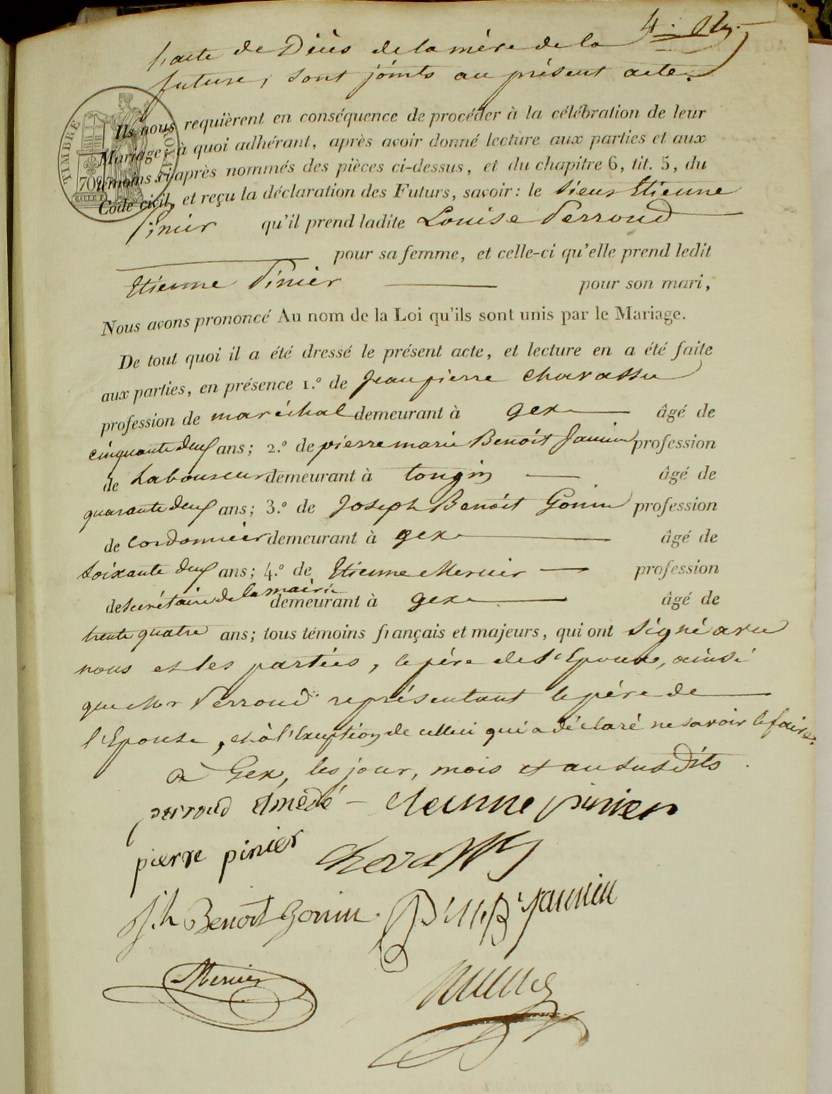 l'acte de Décès de la mère de la
future, sont joints au présent acte.
TIMBRE ROYAL
70
Ils nous requièrent en conséquence de procéder à la célébration de leur
Mariage; à quoi adhérant, après avoir donné lecture aux parties et aux
témoins ci-après nommés des pièces ci-dessus, et du chapitre 6, tit. 5, du
Code civil, et reçu la déclaration des Futurs, savoir: le sieur Etienne
Pinier qu'il prend ladite Louise Perroud
pour sa femme, et celle-ci qu'elle prend ledit
Etienne Pinier pour son mari,
Nous avons prononcé Au nom de la Loi qu'ils sont unis par le Mariage.
De tout quoi il a été dressé le présent acte, et lecture en a été faite
aux parties, en présence 1.º de Jean pierre Chavassu
profession de maréchal demeurant à gex âgé de
cinquante deux ans; 2.º de pierre marie Benoit Jannin profession
de Laboureur demeurant à tougin âgé de
quarante deux ans; 3.º de Joseph Benoit Gonin profession
de Cordonnier demeurant à gex âgé de
soixante deux ans; 4.º de Etienne Mercier profession
de Secrétaire de la mairie demeurant à gex âgé de
trente quatre ans; tous témoins français et majeurs, qui ont signé avec
nous et les parties, le père de l'Epoux, ainsi
que Perroud représentant le père de
l'Epouse, et à l'Exception de celle ci qui a déclaré ne savoir le faire.
à Gex, les jour, mois et an susdits.
perroud Amédé - etienne pinier
pierre pinier
Jh Benoit Gonin. P. M. B. Jannin
Mercier